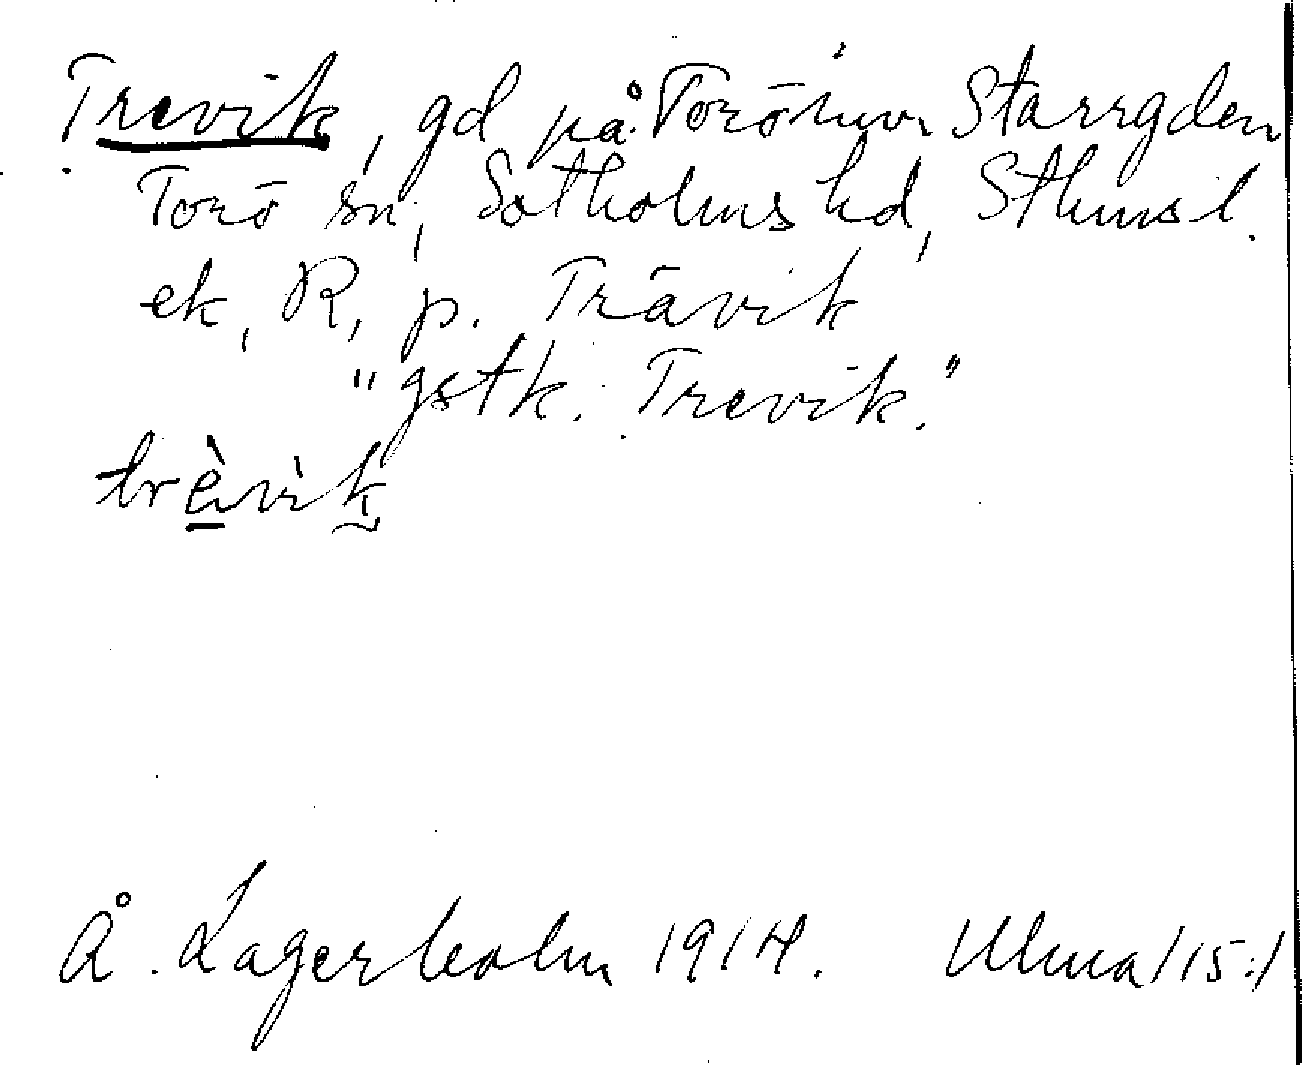 Trevik, gd på Torö huvn Starrgden
Torö sn, Sotholms hd, Sthms l.
ek, R, p. Trävik
"gstk. Trevik."
trèvìk
Å. Lagerholm 1914. Ulma 115:1